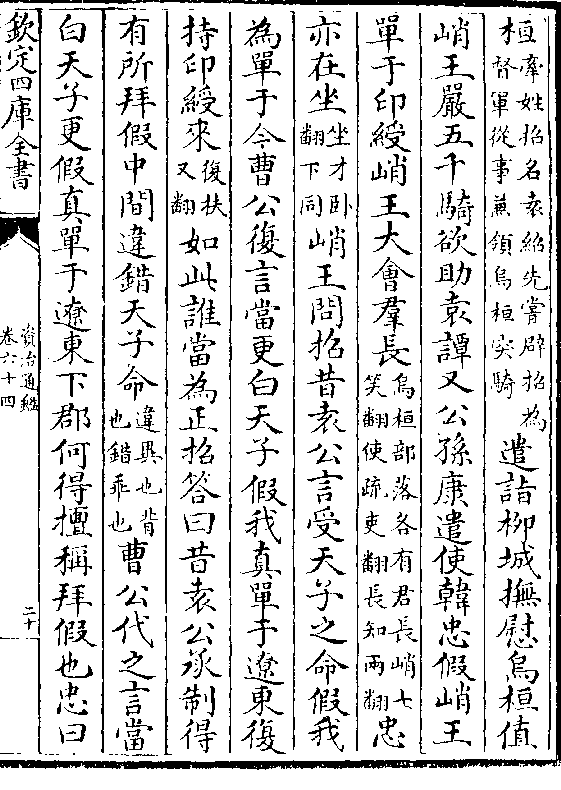 桓牽姓招名袁紹先嘗辟招為督軍從事兼領烏桓突騎遣詣柳城撫慰烏桓值
峭王嚴五千騎欲助袁譚又公孫康遣使韓忠假峭王
單于印綬峭王大會羣長烏桓部落各有君長峭七笑翻使疏吏翻長知兩翻忠
亦在坐坐才卧翻下同峭王問招昔袁公言受天子之命假我
為單于今曹公復言當更白天子假我真單于遼東復
持印綬來復扶又翻如此誰當為正招答曰昔袁公承制得
有所拜假中間違錯天子命違異也背也錯乖也曹公代之言當
白天子更假真單于遼東下郡何得擅稱拜假也忠曰
欽定四庫全書
資治通鑑
卷六十四
二十